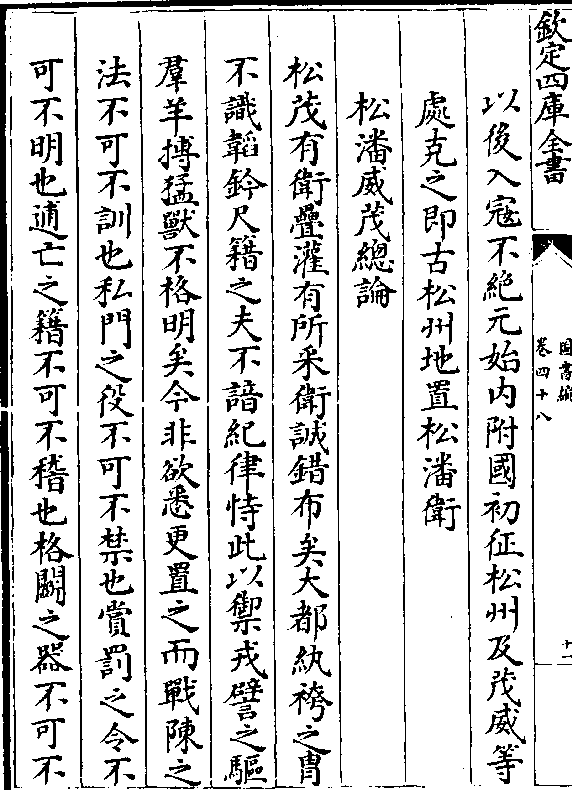 欽定四庫全書
圖書編
卷四十八
十一
以後入寇不絶元始内附國初征松州及茂威等
處克之即古松州地置松潘衛
松潘威茂總論
松茂有衛疊灌有所采衛誠錯布矣大都紈袴之胄
不識韜鈐尺籍之夫不諳紀律恃此以禦戎譬之驅
羣羊搏猛獸不格明矣今非欲悉更置之而戰陳之
法不可不訓也私門之役不可不禁也賞罰之令不
可不明也逋亡之籍不可不稽也格鬬之器不可不